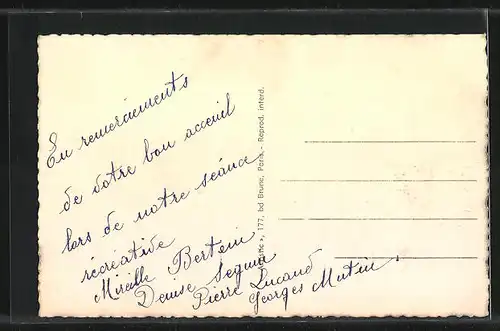 En remerciements
de votre bon acceuil
lors de notre séance
récréative
Mireille Bertein
Denise Seguin
Pierre Lucand
Georges Mutin.
», 177, bd Brune, Paris. - Reprod. interd.